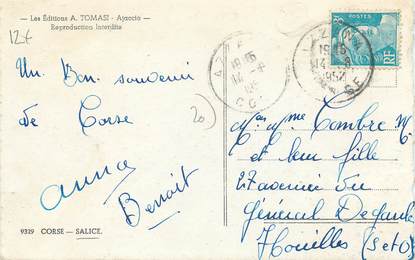 — Les Éditions A. TOMASI - Ajaccio —
Reproduction Interdite
12 +
Un Bon souvenir
de Corse
Anna
Benoit
20
9329 CORSE — SALICE.
POSTES
RF
19 45
14 - 8
1952
Mr Mme Combre M
et leur fille
27 avenue du
Général De Gaulle
Houilles (S et O)